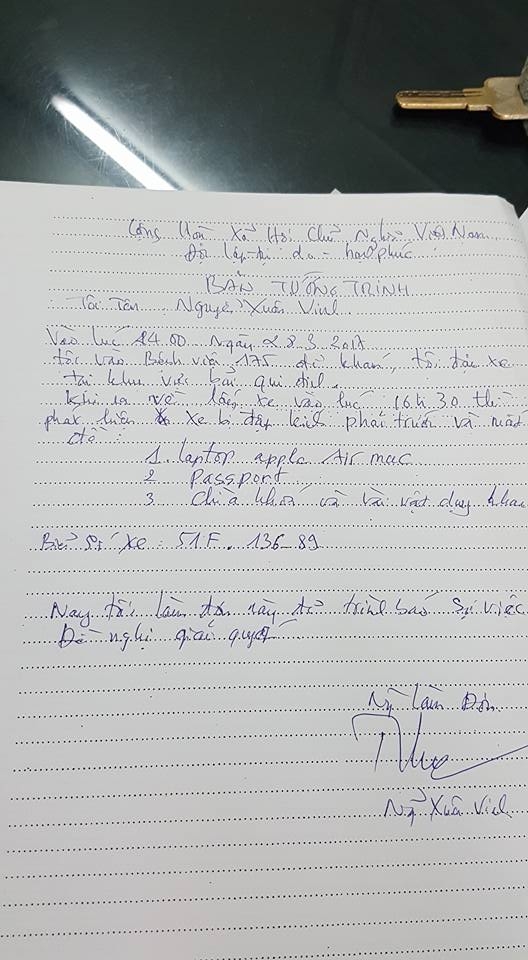 Cộng Hòa Xã Hội Chủ Nghĩa Việt Nam
Độc lập - tự do - hạnh phúc
BẢN TƯỜNG TRÌNH
Tôi Tên Nguyễn Xuân Vinh
Vào lúc 14.00 ngày 28.3.2017
tôi vào Bệnh viện 175 để khám, tôi đậu xe
tại khu vực bãi qui định.
Khi ra về lấy xe vào lúc 16h30 thì
phát hiện xe bị đập kính phải trước và mất
đồ:
1 laptop apple Air mac
2 Passport
3 Chìa khoá và vài vật dụng khác
Biển số xe: 51F. 136_89
Nay tôi làm đơn này để trình báo sự việc
Đề nghị giải quyết
Ng làm Đơn
Ng Xuân Vinh